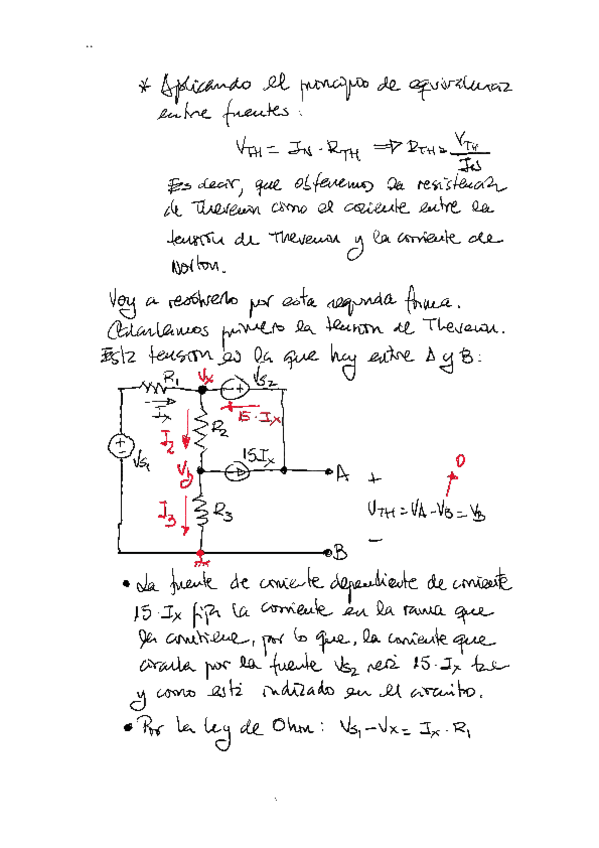 * Aplicando el principio de equivalencia
entre fuentes:
V_TH = I_N · R_TH ⇒ R_TH = V_TH / I_N
Es decir, que obtenemos la resistencia
de Thevenin como el cociente entre la
tensión de Thevenin y la corriente de
Norton.
Voy a resolverlo por esta segunda forma.
Calculamos primero la tensión de Thevenin.
Esta tensión es la que hay entre A y B:
R1
Vx
Vs2
Ix
15·Ix
I2
R2
Vs1
Vy
15Ix
A
+
0
I3
R3
V_TH = VA - VB = VB
-
B
• La fuente de corriente dependiente de corriente
15·Ix fija la corriente en la rama que
la contiene, por lo que, la corriente que
circula por la fuente Vs2 será 15·Ix tal
y como está indicado en el circuito.
• Por la ley de Ohm: Vs1 - Vx = Ix · R1